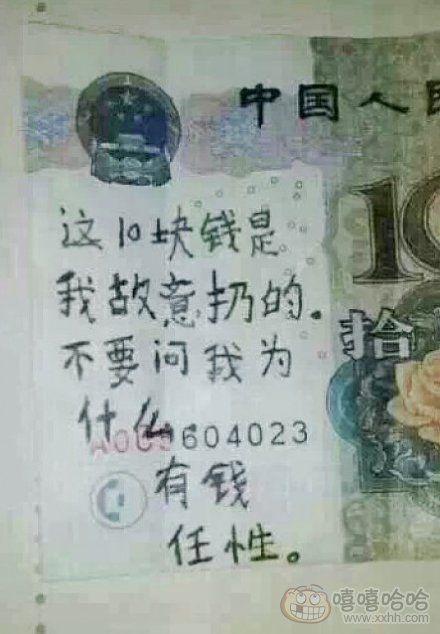 中国人民
10
拾
这10块钱是
我故意扔的。
不要问我为
什么.
604023
有钱
任性。
嘻嘻哈哈
www.xxhh.com